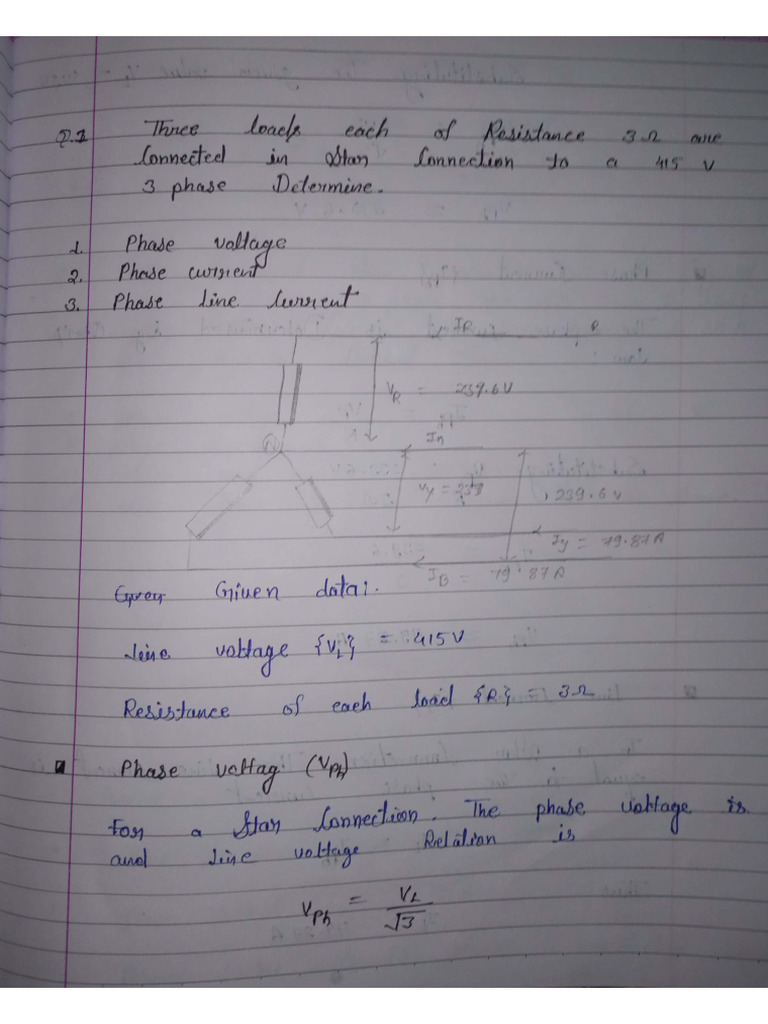 Q.1 Three loads each of Resistance 3 Ω are
Connected in Star Connection to a 415 V
3 phase Determine.
1. Phase voltage
2. Phase current
3. Phase line Current
IR R
VR = 239.6V
In
Vy = 239
239.6 V
Iy = 79.87A
IB = 79.87A
Given data:
Line voltage {VL} = 415V
Resistance of each load {R} = 3Ω
Phase voltag (Vph)
for a Star Connection. The phase voltage is
and line voltage Relation is
Vph = VL/√3